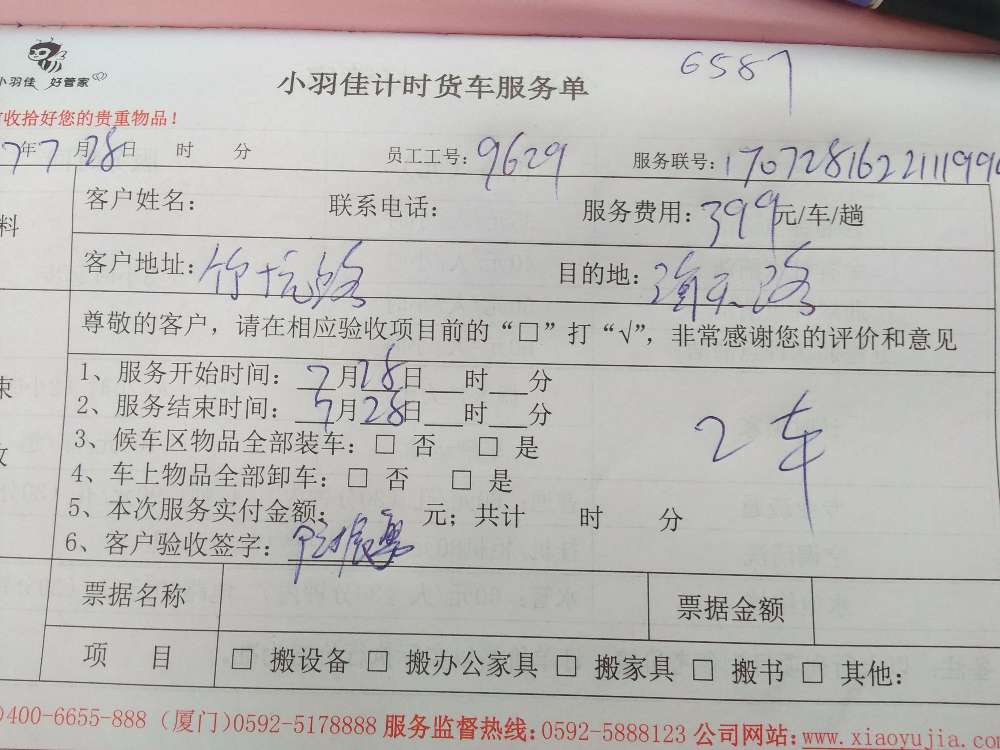 6587
小羽佳 好管家
小羽佳计时货车服务单
收拾好您的贵重物品!
7年7月28日 时 分 员工工号:9629 服务联号:170728162211199
料 客户姓名: 联系电话: 服务费用:399元/车/趟
客户地址:竹坑路 目的地:
尊敬的客户,请在相应验收项目前的“□”打“√”,非常感谢您的评价和意见
1、服务开始时间:7月28日 时 分
束 2、服务结束时间:7月28日 时 分
2车
3、候车区物品全部装车:□ 否 □ 是
4、车上物品全部卸车:□ 否 □ 是
5、本次服务实付金额: 元;共计 时 分
6、客户验收签字:
票据名称 票据金额
项 目 □ 搬设备 □ 搬办公家具 □ 搬家具 □ 搬书 □ 其他:
)400-6655-888 (厦门)0592-5178888 服务监督热线:0592-5888123 公司网站:www.xiaoyujia.co